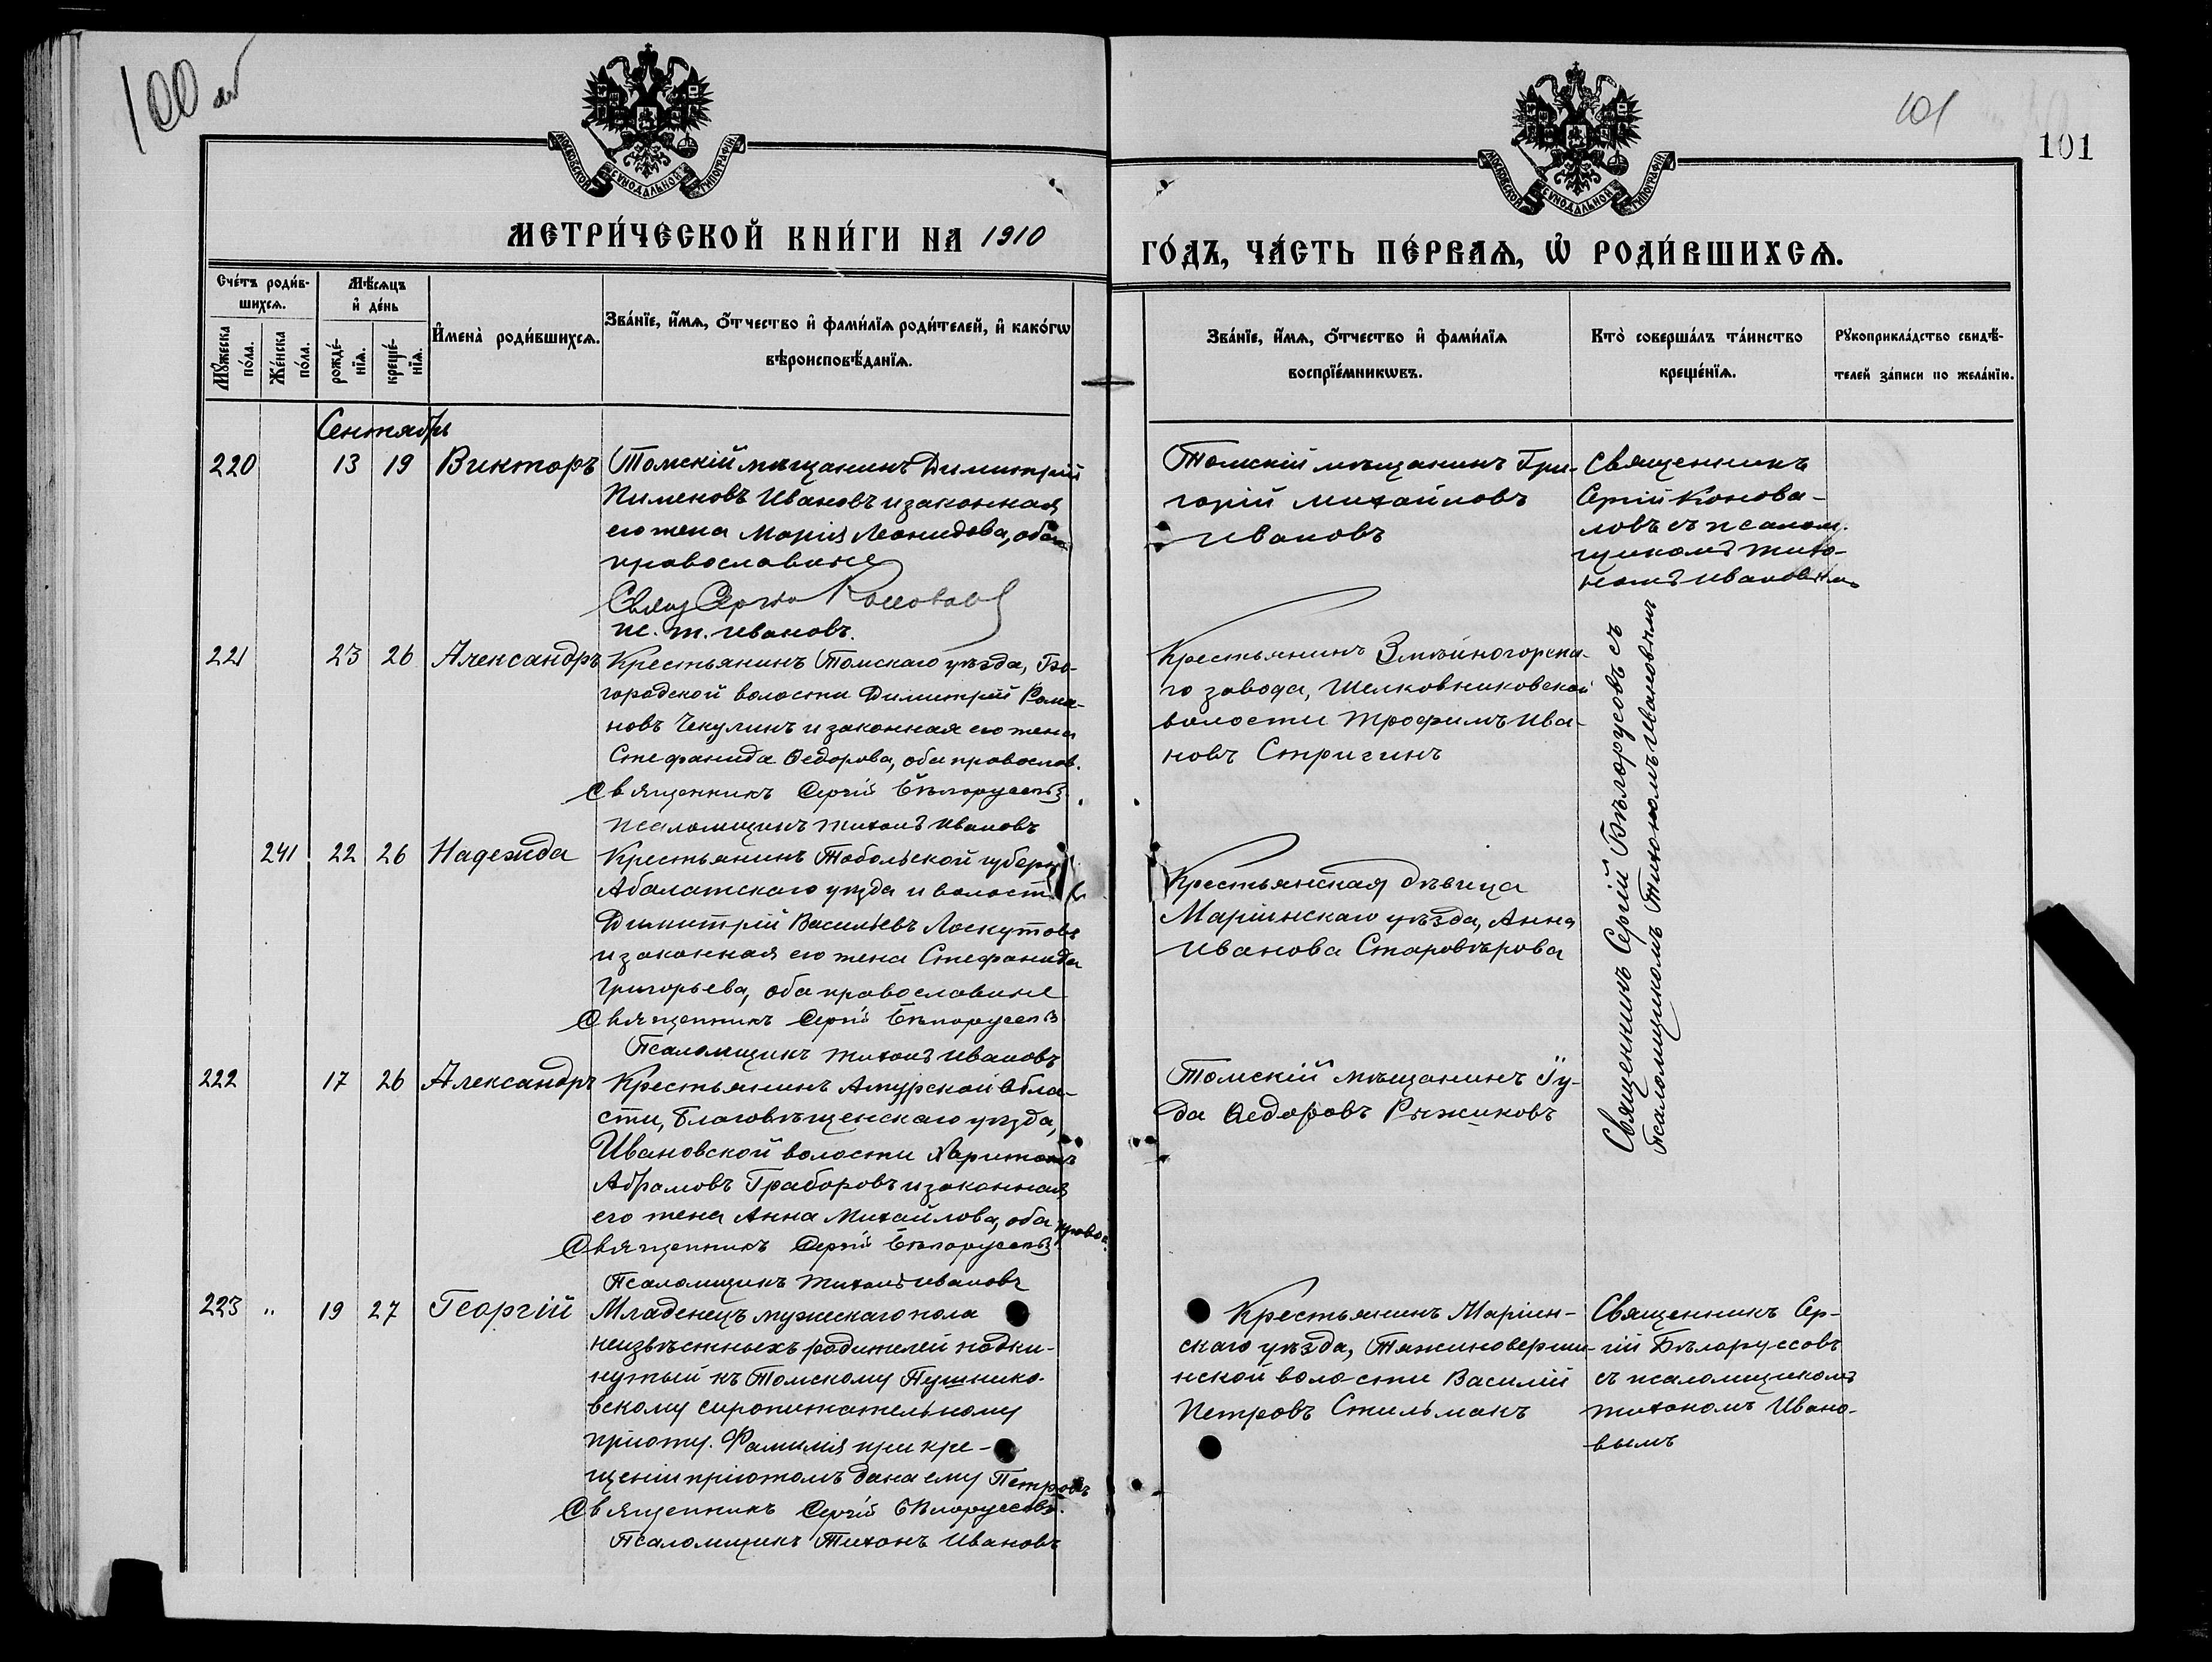 100 об
101
101
МОСКОВСКОЙ СѴНОДАЛЬНОЙ ТИПОГРАФІИ
МОСКОВСКОЙ СѴНОДАЛЬНОЙ ТИПОГРАФІИ
МЕТРИ́ЧЕСКОЙ КНИ́ГИ НА 1910
ГО́ДЪ, ЧА́СТЬ ПЕ́РВАѦ, Ѡ РОДИ́ВШИХСѦ.
Сче́тъ роди́в-
шихсѧ.
Мꙋ́жеска
по́ла.
Же́нска
по́ла.
Мѣ́сѧцъ
и де́нь
рожде́-
нїѧ.
креще́-
нїѧ.
Имена̀ роди́вшихсѧ.
Зва́нїе, и́мѧ, о́тчество и фами́лїѧ роди́телей, и како́гѡ
вѣроисповѣ́данїѧ.
Зва́нїе, и́мѧ, о́тчество и фами́лїѧ
воспрїе́мникѡвъ.
Кто̀ соверша́лъ та́инство
креще́нїѧ.
Рꙋкоприкла́дство свидѣ́-
телей за́писи по жела́нїю.
Сентябрь
220 13 19 Викторъ
Томскій мѣщанинъ Димитрій
Пименовъ Ивановъ и законная
его жена Марія Леонидова, оба
православные
Свящ Сергій Коновалов
пс. Т. Ивановъ.
Томскій мѣщанинъ Гри-
горій Михайловъ
Ивановъ
Священникъ
Сергій Конова-
ловъ съ псалом-
щикомъ Тихо-
номъ Ивановымъ
221 23 26 Александръ
Крестьянинъ Томскаго уѣзда, Бо-
городской волости Димитрій Рома-
новъ Чекулинъ и законная его жена
Стефанида Ѳедорова, оба православ.
Священникъ Сергій Бѣлоруссовъ.
Псаломщикъ Тихонъ Ивановъ
Крестьянинъ Змѣиногорска-
го завода, Шелковниковской
волости Трофимъ Ива-
новъ Стригинъ
Священникъ Сергій Бѣлоруссовъ съ
Псаломщикомъ Тихономъ Ивановымъ
241 22 26 Надежда
Крестьянинъ Тобольской губерн
Абалатскаго уѣзда и волости
Димитрій Васильевъ Лоскутовъ
и законная его жена Стефанида
Григорьева, оба православные
Священникъ Сергій Бѣлоруссовъ
Псаломщикъ Тихонъ Ивановъ
Крестьянская дѣвица
Маріинскаго уѣзда, Анна
Иванова Старовѣрова
222 17 26 Александръ
Крестьянинъ Амурской обла-
сти, Благовѣщенскаго уѣзда,
Ивановской волости Харитонъ
Абрамовъ Граборовъ и законная
его жена Анна Михайлова, оба правос.
Священникъ Сергій Бѣлоруссовъ
Псаломщикъ Тихонъ Ивановъ
Томскій мѣщанинъ Іу-
да Ѳедоровъ Рыжиковъ
223 " 19 27 Георгій
Младенецъ мужескаго пола
неизвѣстныхъ родителей подки-
нутый къ Томскому Пушнико-
вскому сиропитательному
пріюту. Фамилія при кре-
щеніи пріютомъ дана ему Петровъ
Священникъ Сергій Бѣлоруссовъ.
Псаломщикъ Тихонъ Ивановъ
Крестьянинъ Маріин-
скаго уѣзда, Тяжиноверши-
нской волости Василій
Петровъ Стильмакъ
Священникъ Сер-
гій Бѣлоруссовъ
съ псаломщикомъ
Тихономъ Ивано-
вымъ